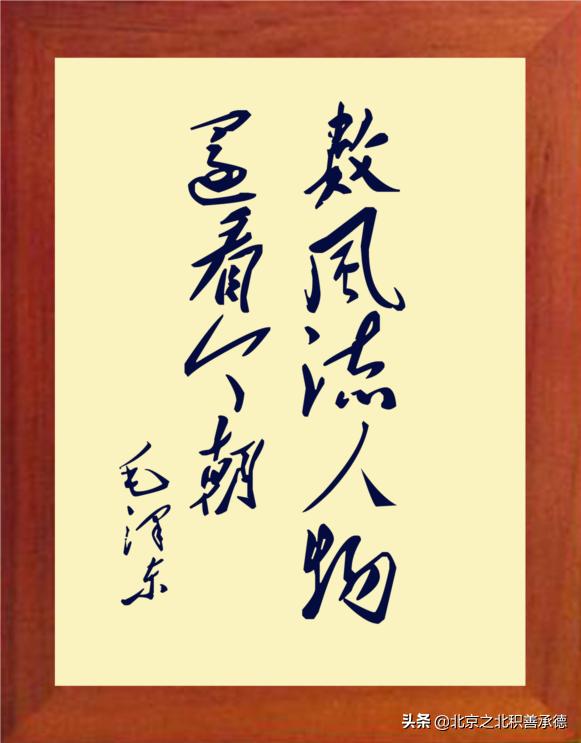 数风流人物
还看今朝
毛泽东
头条 @北京之北积善承德